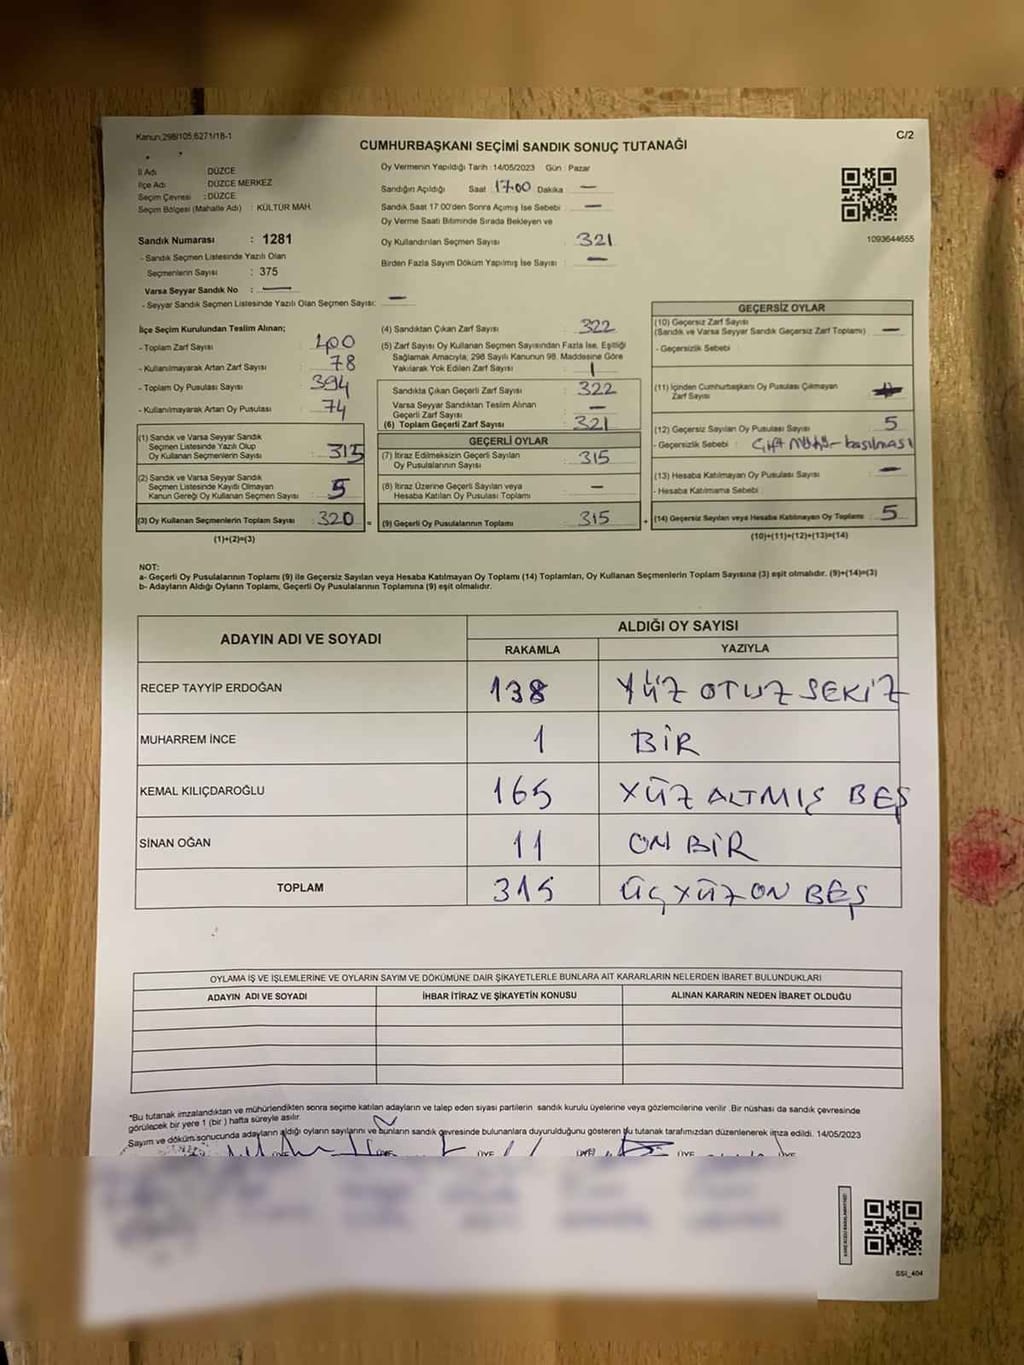 Kanun:298/105,6271/18-1
C/2
CUMHURBAŞKANI SEÇİMİ SANDIK SONUÇ TUTANAĞI
İl Adı : DÜZCE
İlçe Adı : DÜZCE MERKEZ
Seçim Çevresi : DÜZCE
Seçim Bölgesi (Mahalle Adı) : KÜLTÜR MAH.
Sandık Numarası : 1281
- Sandık Seçmen Listesinde Yazılı Olan
Seçmenlerin Sayısı : 375
Varsa Seyyar Sandık No : —
- Seyyar Sandık Seçmen Listesinde Yazılı Olan Seçmen Sayısı: —
Oy Vermenin Yapıldığı Tarih :14/05/2023 Gün : Pazar
Sandığın Açıldığı Saat 17:00 Dakika —
Sandık Saat 17:00'den Sonra Açımış İse Sebebi —
Oy Verme Saati Bitiminde Sırada Bekleyen ve
Oy Kullandırılan Seçmen Sayısı : 321
Birden Fazla Sayım Döküm Yapılmış İse Sayısı : —
1093644655
İlçe Seçim Kurulundan Teslim Alınan;
- Toplam Zarf Sayısı : 400
- Kullanılmayarak Artan Zarf Sayısı : 78
- Toplam Oy Pusulası Sayısı : 394
- Kullanılmayarak Artan Oy Pusulası : 74
(1) Sandık ve Varsa Seyyar Sandık
Seçmen Listesinde Yazılı Olup
Oy Kullanan Seçmenlerin Sayısı : 315
(2) Sandık ve Varsa Seyyar Sandık
Seçmen Listesinde Kaydı Olmayan
Kanun Gereği Oy Kullanan Seçmen Sayısı : 5
(3) Oy Kullanan Seçmenlerin Toplam Sayısı : 320 =
(1)+(2)=(3)
(4) Sandıktan Çıkan Zarf Sayısı : 322
(5) Zarf Sayısı Oy Kullanan Seçmen Sayısından Fazla İse, Eşitliği
Sağlamak Amacıyla, 298 Sayılı Kanunun 98. Maddesine Göre
Yakılarak Yok Edilen Zarf Sayısı : 1
Sandıkta Çıkan Geçerli Zarf Sayısı : 322
Varsa Seyyar Sandıktan Teslim Alınan
Geçerli Zarf Sayısı : —
(6) Toplam Geçerli Zarf Sayısı : 321
GEÇERLİ OYLAR
(7) İtiraz Edilmeksizin Geçerli Sayılan
Oy Pusulalarının Sayısı : 315
(8) İtiraz Üzerine Geçerli Sayılan veya
Hesaba Katılan Oy Pusulası Toplamı : —
(9) Geçerli Oy Pusulalarının Toplamı : 315 +
GEÇERSİZ OYLAR
(10) Geçersiz Zarf Sayısı
(Sandık ve Varsa Seyyar Sandık Geçersiz Zarf Toplamı) : —
- Geçersizlik Sebebi :
(11) İçinden Cumhurbaşkanı Oy Pusulası Çıkmayan
Zarf Sayısı
(12) Geçersiz Sayılan Oy Pusulası Sayısı : 5
- Geçersizlik Sebebi : Çift Mühür basılması
(13) Hesaba Katılmayan Oy Pusulası Sayısı : —
- Hesaba Katılmama Sebebi :
(14) Geçersiz Sayılan veya Hesaba Katılmayan Oy Toplamı : 5
(10)+(11)+(12)+(13)=(14)
NOT:
a- Geçerli Oy Pusulalarının Toplamı (9) ile Geçersiz Sayılan veya Hesaba Katılmayan Oy Toplamı (14) Toplamları, Oy Kullanan Seçmenlerin Toplam Sayısına (3) eşit olmalıdır. (9)+(14)=(3)
b- Adayların Aldığı Oyların Toplamı, Geçerli Oy Pusulalarının Toplamına (9) eşit olmalıdır.
ADAYIN ADI VE SOYADI
ALDIĞI OY SAYISI
RAKAMLA YAZIYLA
RECEP TAYYİP ERDOĞAN 138 YÜZ OTUZ SEKİZ
MUHARREM İNCE 1 BİR
KEMAL KILIÇDAROĞLU 165 YÜZ ALTMIŞ BEŞ
SİNAN OĞAN 11 ON BİR
TOPLAM 315 ÜÇ YÜZ ON BEŞ
OYLAMA İŞ VE İŞLEMLERİNE VE OYLARIN SAYIM VE DÖKÜMÜNE DAİR ŞİKAYETLERLE BUNLARA AİT KARARLARIN NELERDEN İBARET BULUNDUKLARI
ADAYIN ADI VE SOYADI İHBAR İTİRAZ VE ŞİKAYETİN KONUSU ALINAN KARARIN NEDEN İBARET OLDUĞU
*Bu tutanak imzalandıktan ve mühürlendikten sonra seçime katılan adayların ve talep eden siyasi partilerin sandık kurulu üyelerine veya gözlemcilerine verilir .Bir nüshası da sandık çevresinde
görülecek bir yere 1 (bir ) hafta süreyle asılır.
Sayım ve döküm sonucunda adayların aldığı oyların sayılarını ve bunların sandık çevresinde bulunanlara duyurulduğunu gösteren bu tutanak tarafımızdan düzenlenerek imza edildi. 14/05/2023
ÜYE ÜYE ÜYE ÜYE ÜYE
SSI_404